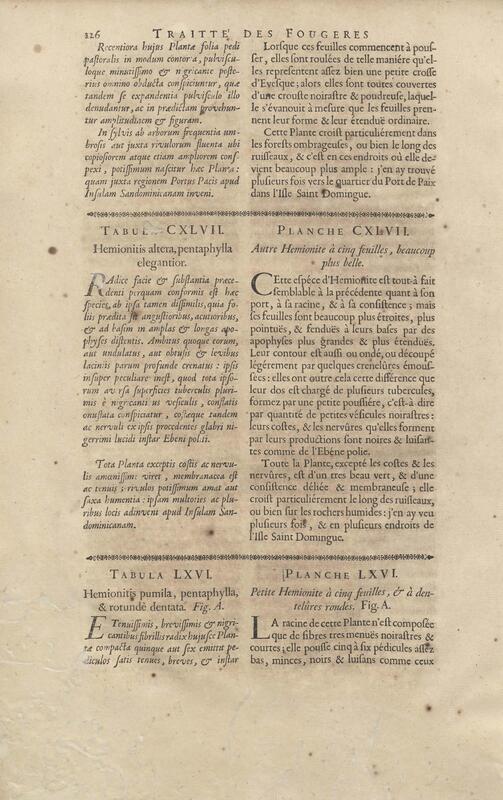 126 TRAITTÉ DES FOUGERES
Recentiora hujus Plantæ folia pedi
pastoralis in modum contorta, pulvisculoque
minutissimo & nigricante posterius
omnino obducta conspiciuntur, quæ
tandem se expandentia pulvisculo illo
denudantur, ac in prædictam provehuntur
amplitudinem & figuram.
In sylvis ab arborum frequentia umbrosis
aut juxta rivulorum fluenta ubi
copiosiorem atque etiam ampliorem conspexi,
potissimum nascitur hæc Planta:
quam juxta regionem Portus Pacis apud
Insulam Sandominicanam inveni.
Lorsque ces feuilles commencent à pousser,
elles sont roulées de telle maniére qu'elles
representent assez bien une petite crosse
d'Evesque; alors elles sont toutes couvertes
d'une crouste noirastre & poudreuse, laquelle
s'évanouit à mesure que les feuilles prennent
leur forme & leur étenduë ordinaire.
Cette Plante croist particuliérement dans
les forests ombrageuses, ou bien le long des
ruisseaux, & c'est en ces endroits où elle devient
beaucoup plus ample: j'en ay trouvé
plusieurs fois vers le quartier du Port de Paix
dans l'Isle Saint Domingue.
TABULA CXLVII.
Hemionitis altera, pentaphylla
elegantior.
RAdice facie & substantia præcedenti
perquam conformis est hæc
species, ab ipsa tamen dissimilis, quia foliis
prædita sit angustioribus, acutioribus,
& ad basim in amplas & longas apophyses
distentis. Ambitus quoque eorum,
aut undulatus, aut obtusis & levibus
laciniis parum profunde crenatus: ipsis
insuper peculiare inest, quod tota ipsorum
aversa superficies tuberculis plurimis
è nigricantibus vesiculis, constatis
onustata conspiciatur, costæque tandem
ac nervuli ex ipsis procedentes glabri nigerrimi
lucidi instar Ebeni politi.
Tota Planta exceptis costis ac nervulis
amœnissimè viret, membranacea est
ac tenuis; rivulos potissimum amat aut
saxa humentia: ipsam multoties ac pluribus
locis adinveni apud Insulam Sandominicanam.
PLANCHE CXLVII.
Autre Hemionite à cinq feuilles, beaucoup
plus belle.
CEtte espéce d'Hemionite est tout à fait
semblable à la précédente quant à son
port, à sa racine, & à sa consistence; mais
ses feuilles sont beaucoup plus étroites, plus
pointuës, & fenduës à leurs bases par des
apophyses plus grandes & plus étenduës.
Leur contour est aussi ou ondé, ou découpé
légérement par quelques crenelûres émoussées:
elles ont outre cela cette différence que
leur dos est chargé de plusieurs tubercules,
formez par une petite poussiére, c'est-à dire
par quantité de petites vésicules noirastres:
leurs costes, & les nervûres qu'elles forment
par leurs productions sont noires & luisantes
comme de l'Ebéne polie.
Toute la Plante, excepté les costes & les
nervûres, est d'un tres beau vert, & d'une
consistence déliée & membraneuse; elle
croist particuliérement le long des ruisseaux,
ou bien sur les rochers humides: j'en ay veu
plusieurs fois, & en plusieurs endroits de
l'Isle Saint Domingue.
TABULA LXVI.
Hemionitis pumila, pentaphylla,
& rotundè dentata. Fig. A.
E Tenuissimis, brevissimis & nigricantibus
fibrillis radix hujusce Plantæ
compacta quinque aut sex emittit pediculos
satis tenues, breves, & instar
PLANCHE LXVI.
Petite Hemionite à cinq feuilles, & à dentelûres
rondes. Fig. A.
LA racine de cette Plante n'est composée
que de fibres tres menuës noirastres &
courtes; elle pousse cinq à six pédicules assez
bas, minces, noirs & luisans comme ceux